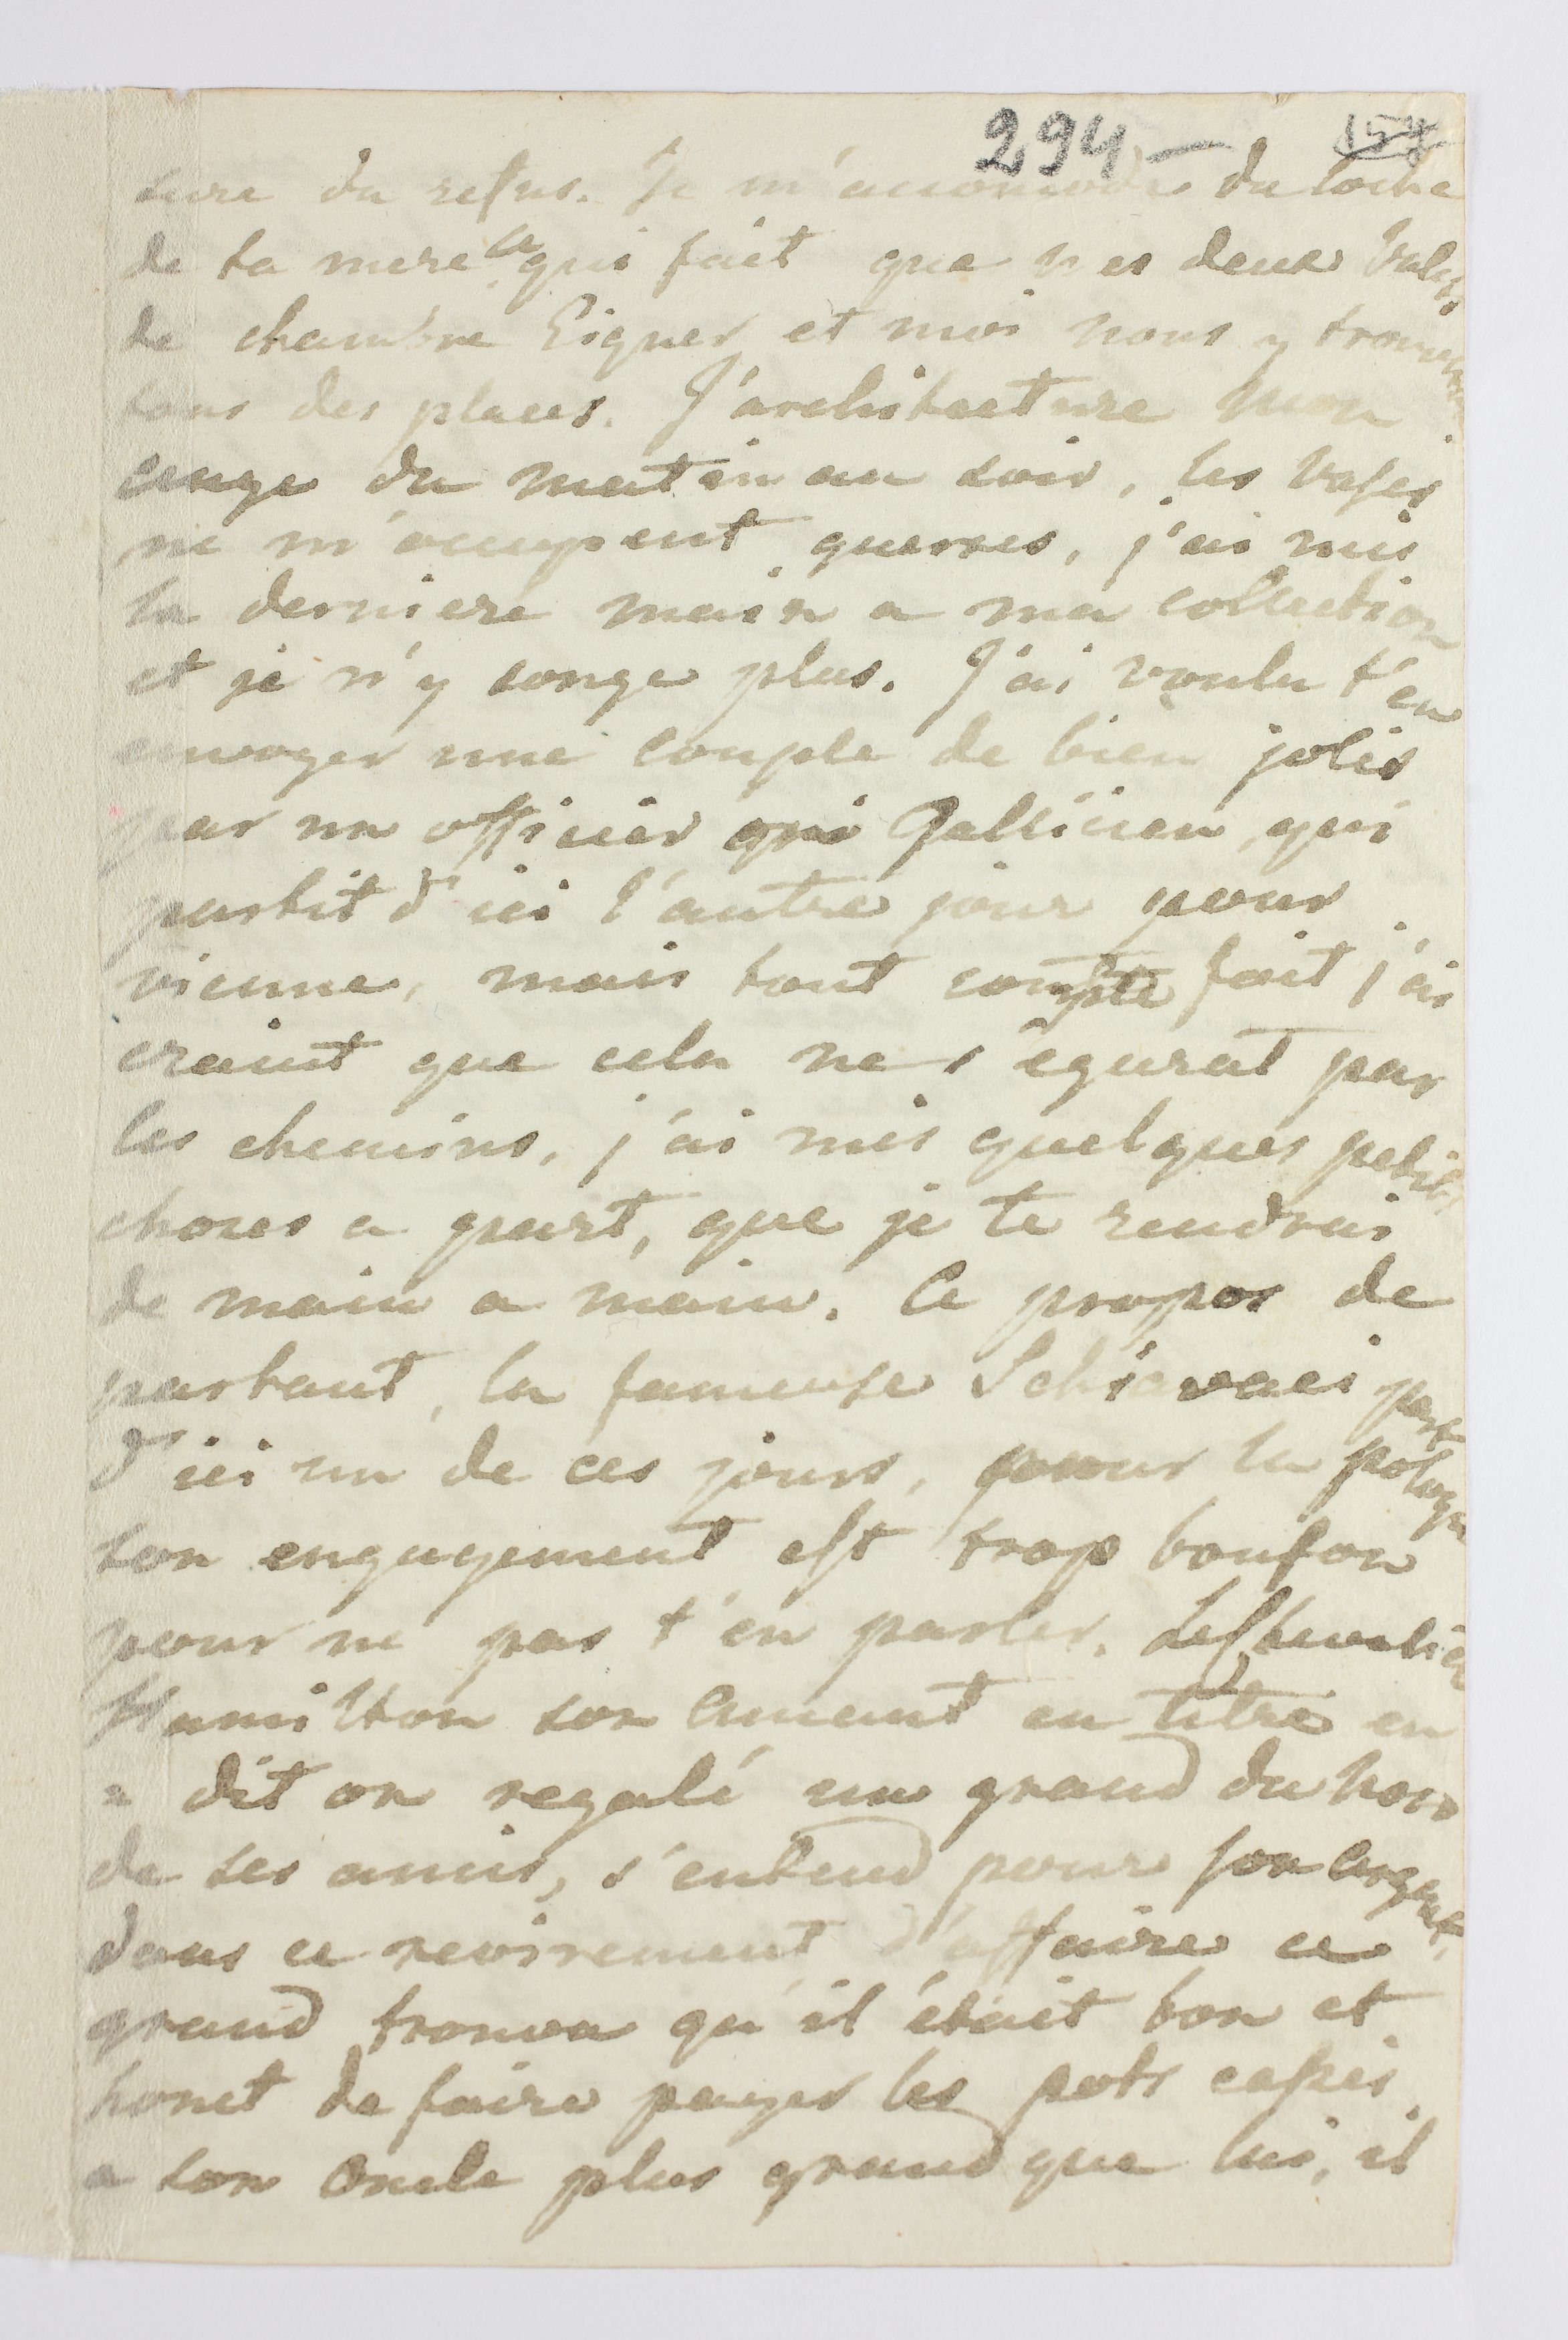 294 —
157
sure du refus. Je m'accomode du coche
de ta mere ce qui fait que mes deux valets
de chambre Eigner et moi nous y trouverons
tous des places. J'architecture mon
ange du matin au soir, les vases
ne m'occupent guerres, j'ai mis
la derniere main a ma collection
et je n'y songe plus. J'ai voulu t'en
envoyer une couple de bien jolis
par un officier qui Gallicien, qui
partit d'ici l'autre jour pour
vienne, mais tout compte fait j'ai
craint que cela ne s'egurat par
les chemins, j'ai mis quelques petites
choses a part, que je te rendrai
de main a main. A propos de
partant, la fameuse Schiavaci part
d'ici un de ces jours, pour la pologne
son engagement est trop boufon
pour ne pas t'en parler. Le chevalier
Hamilton son Amant en titre en
a dit on regalé un grand du nord
de ses amis, s'entend pour son argent,
dans ce revirement d'affaire ce
grand trouva qu'il était bon et
honet de faire payer les pots cassés
a son oncle plus grand que lui, il